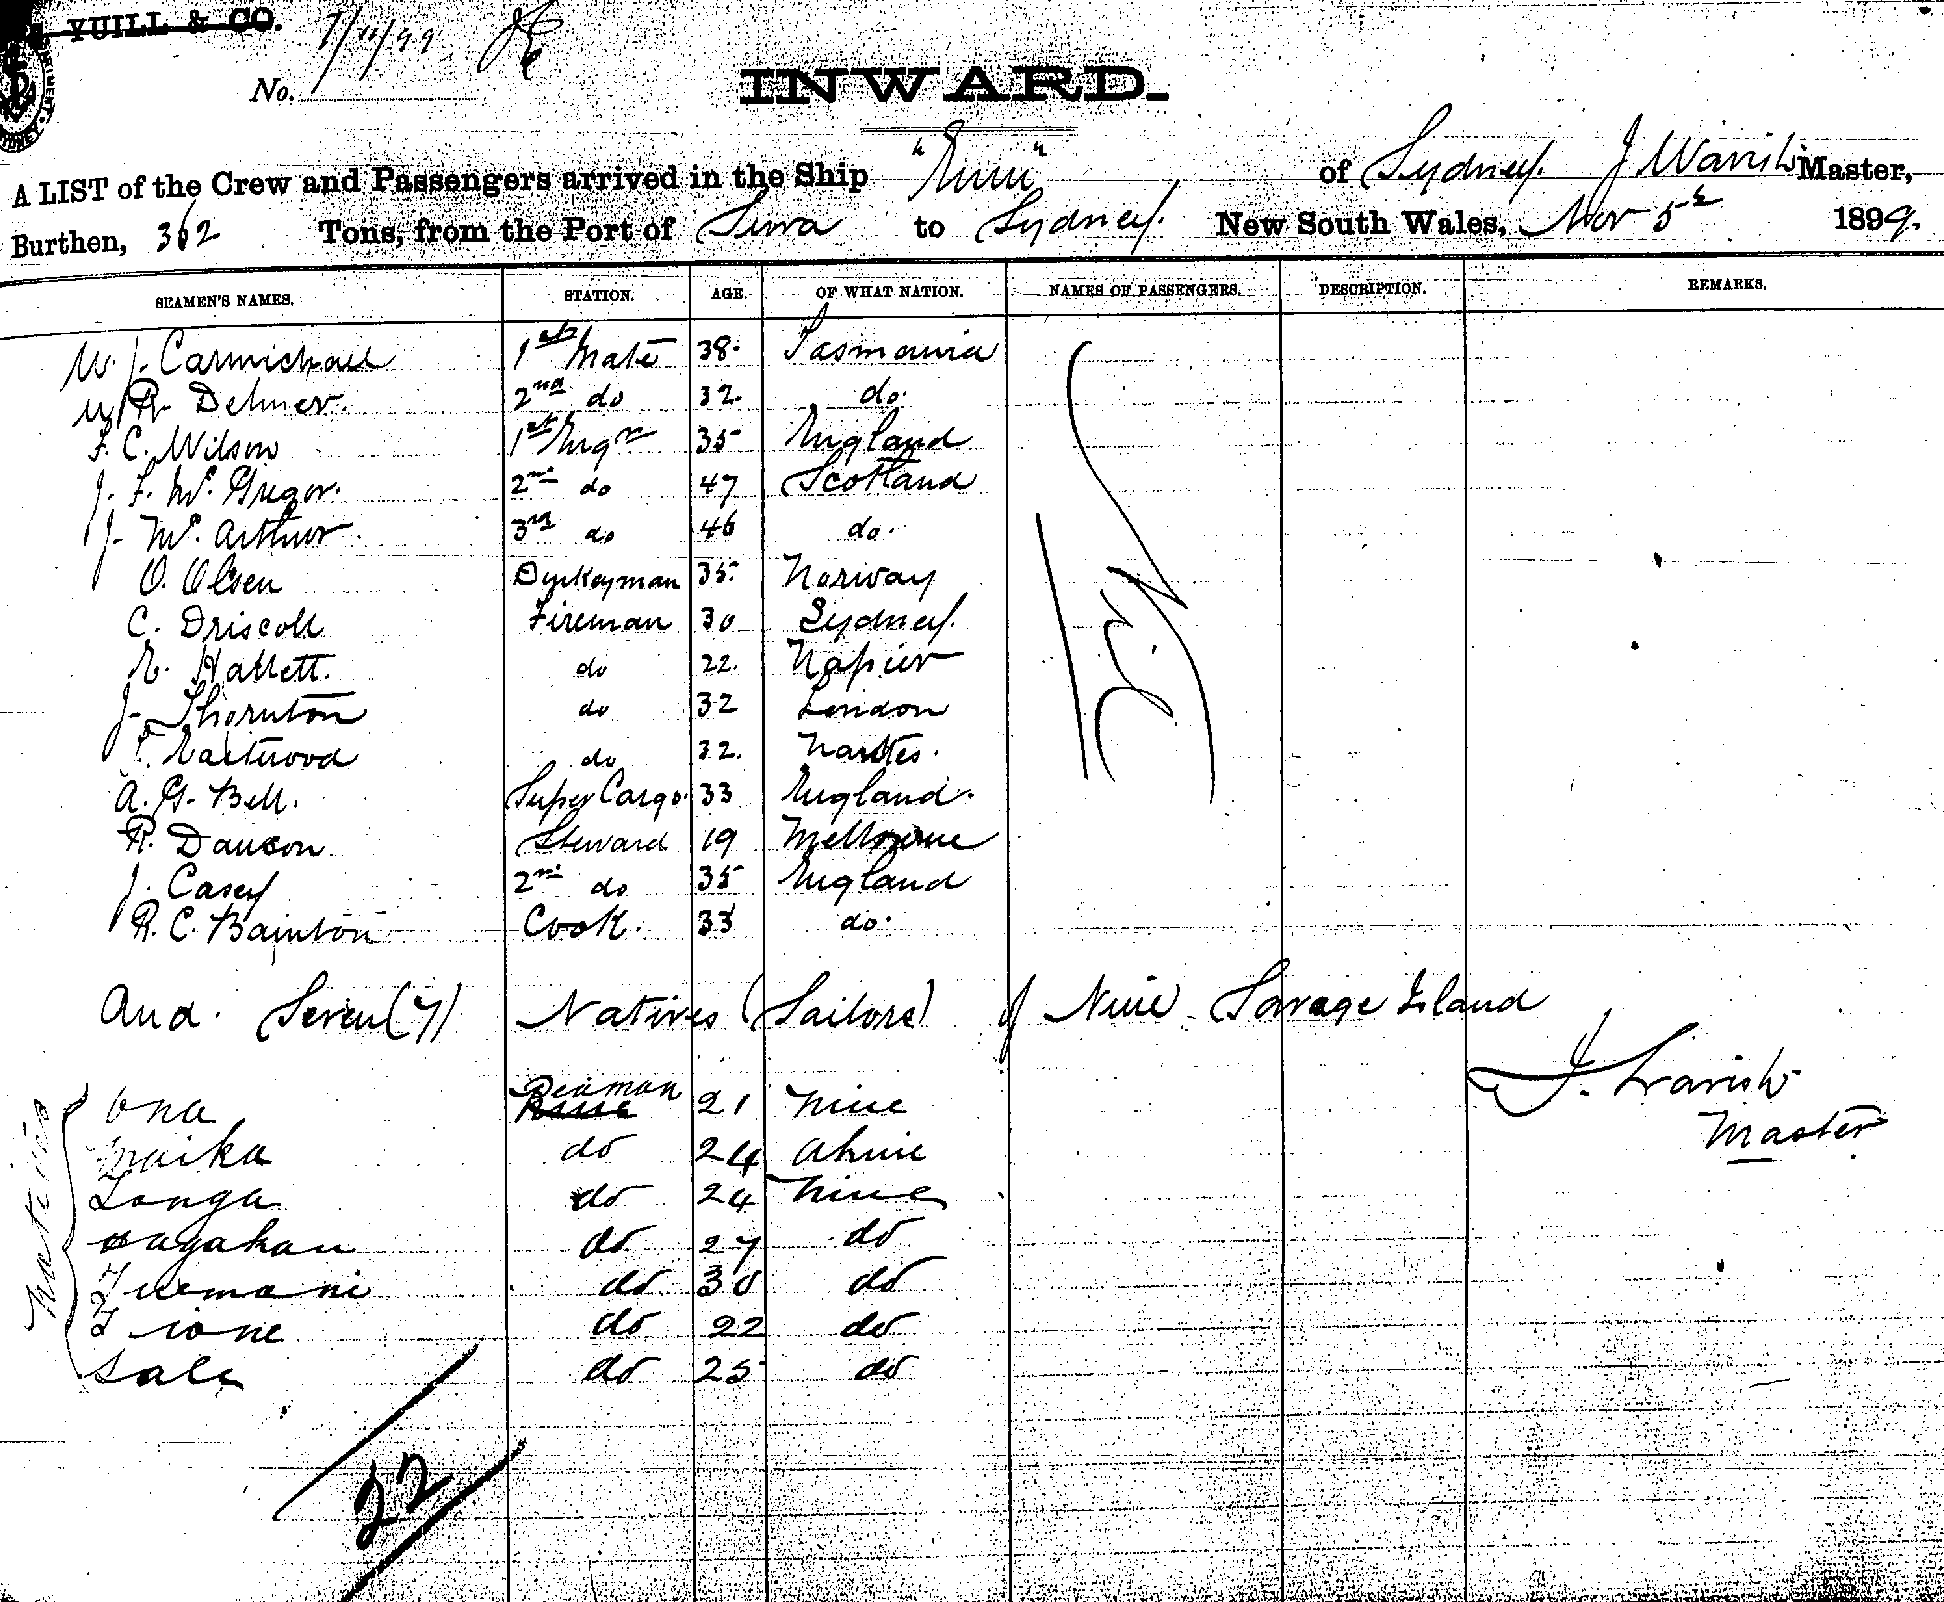 YUILL & CO.
7/11/99
No.
INWARD.
A LIST of the Crew and Passengers arrived in the Ship " " of Sydney. J Warish Master,
Burthen, 362 Tons, from the Port of Suva to Sydney. New South Wales, Nov 5th 1899.
SEAMEN'S NAMES. STATION. AGE. OF WHAT NATION. NAMES OF PASSENGERS. DESCRIPTION. REMARKS.
W. J. Carmichael 1st Mate 38. Tasmania
R Delmer. 2nd do 32. do.
F. C. Wilson 1st Engr 35 England
J. F. Mc. Gregor. 2nd do 47 Scotland
J. Mc. Arthur. 3rd do 46 do.
O. Olsen 35. Norway
C. Driscoll Fireman 30 Sydney.
E. Hallett. do 22. Napier
J. Thornton do 32 London
T. Eastwood do 32. Nantes.
A. G. Bell. Super Cargo. 33 England.
R. Dawson. Steward 19 Melbourne
J. Casey 2nd do 35 England
R. C. Bainton Cook. 33 do.
Nil
And. Seven (7) Natives (Sailors) of Niue Savage Island
J. Warish
Master
Natives
Ona Seaman 21 Niue
Maika do 24
Longa do 24 Niue
do 27 do
Tuemani do 30 do
Tione do 22 do
Sale do 25 do
22